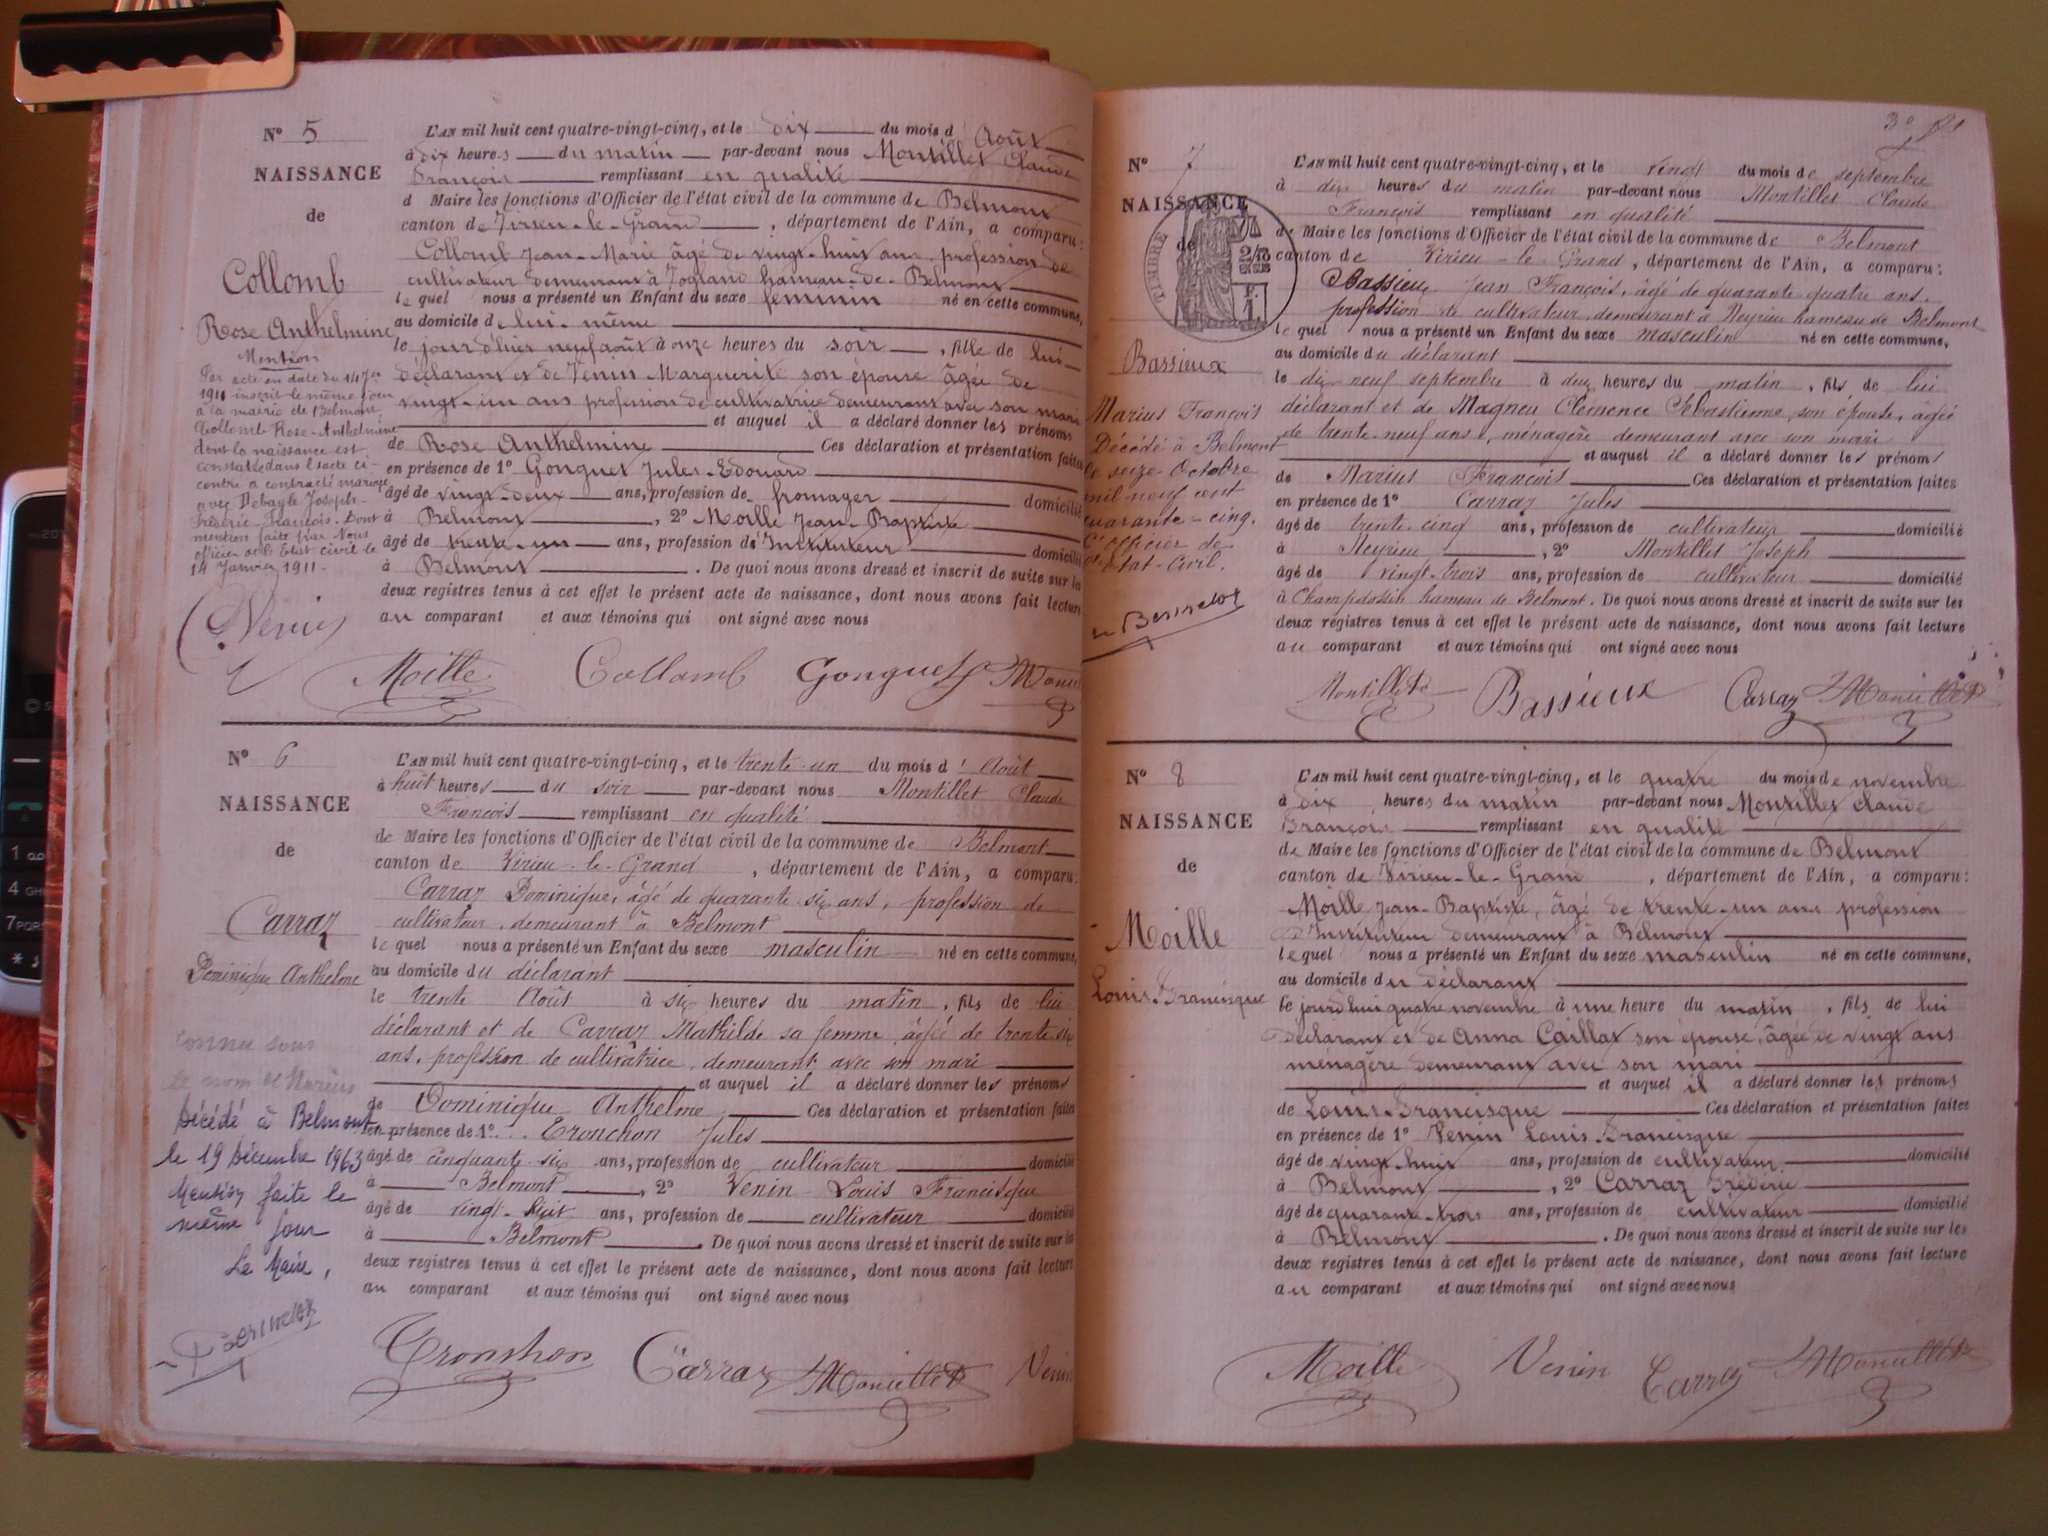 N° 5
NAISSANCE
de
Collomb
Rose Anthelmine
Mention
Par acte en date du 14 Jer
1911 inscrit le même jour
à la mairie de Belmont,
Collomb Rose-Anthelmine
dont la naissance est
constatée dans l'acte ci-
contre a contracté mariage
avec Debayle Joseph-
Frédéric-François. Dont
mention faite par Nous
officier de l'Etat civil le
14 Janvier 1911.
L'AN mil huit cent quatre-vingt-cinq, et le dix du mois d'Août
à dix heures du matin par-devant nous Montillet Claude
François remplissant en qualité
d Maire les fonctions d'Officier de l'état civil de la commune de Belmont
canton de Virieu-le-Grand, département de l'Ain, a comparu:
Collomb Jean-Marie âgé de vingt-huit ans, profession de
cultivateur demeurant à hameau de Belmont
le quel nous a présenté un Enfant du sexe féminin né en cette commune,
au domicile de lui-même
le jour d'hier neuf août à onze heures du soir, fille de lui
déclarant et de Venin Marguerite son épouse âgée de
vingt-un ans profession de cultivatrice demeurant avec son mari
et auquel il a déclaré donner les prénoms
de Rose Anthelmine Ces déclaration et présentation faites
en présence de 1° Gonguet Jules-Edouard
âgé de vingt-deux ans, profession de fromager domicilié
à Belmont, 2° Moille Jean-Baptiste
âgé de trente-un ans, profession d'Instituteur domicilié
à Belmont. De quoi nous avons dressé et inscrit de suite sur les
deux registres tenus à cet effet le présent acte de naissance, dont nous avons fait lecture
au comparant et aux témoins qui ont signé avec nous
Moille Collomb Gonguet
N° 6
NAISSANCE
de
Carraz
Dominique Anthelme
connu sous
le nom de Marius
Décédé à Belmont
le 19 Décembre 1963
Mention faite le
même jour
Le Maire,
L'AN mil huit cent quatre-vingt-cinq, et le trente-un du mois d'Août
à huit heures du soir par-devant nous Montillet Claude
François remplissant en qualité
de Maire les fonctions d'Officier de l'état civil de la commune de Belmont
canton de Virieu-le-Grand, département de l'Ain, a comparu:
Carraz Dominique, âgé de quarante six ans, profession de
cultivateur, demeurant à Belmont
le quel nous a présenté un Enfant du sexe masculin né en cette commune,
au domicile du déclarant
le trente Août à six heures du matin, fils de lui
déclarant et de Carraz Mathilde sa femme, âgée de trente-six
ans, profession de cultivatrice, demeurant avec son mari
et auquel il a déclaré donner les prénoms
de Dominique Anthelme Ces déclaration et présentation faites
en présence de 1° Tronchon Jules
âgé de cinquante-six ans, profession de cultivateur domicilié
à Belmont, 2° Venin Louis Francisque
âgé de vingt-huit ans, profession de cultivateur domicilié
à Belmont. De quoi nous avons dressé et inscrit de suite sur les
deux registres tenus à cet effet le présent acte de naissance, dont nous avons fait lecture
au comparant et aux témoins qui ont signé avec nous
Tronchon Carraz Montillet Venin
N° 7
NAISSANCE
de
TIMBRE
2/10
EN SUS
Bassieux
Marius François
Décédé à Belmont
le seize Octobre
mil neuf cent
quarante-cinq.
L'officier de
l'état-Civil.
L'AN mil huit cent quatre-vingt-cinq, et le vingt du mois de septembre
à dix heures du matin par-devant nous Montillet Claude
François remplissant en qualité
de Maire les fonctions d'Officier de l'état civil de la commune de Belmont
canton de Virieu-le-Grand, département de l'Ain, a comparu:
Bassieux Jean François, âgé de quarante quatre ans,
profession de cultivateur, demeurant à Neyrieu hameau de Belmont
le quel nous a présenté un Enfant du sexe masculin né en cette commune,
au domicile du déclarant
le dix-neuf septembre à dix heures du matin, fils de lui
déclarant et de Magneu Clémence Sébastienne, son épouse, âgée
de trente-neuf ans, ménagère demeurant avec son mari
et auquel il a déclaré donner les prénoms
de Marius François Ces déclaration et présentation faites
en présence de 1° Carraz Jules
âgé de trente-cinq ans, profession de cultivateur domicilié
à Neyrieu, 2° Montillet Joseph
âgé de vingt-trois ans, profession de cultivateur domicilié
à hameau de Belmont. De quoi nous avons dressé et inscrit de suite sur les
deux registres tenus à cet effet le présent acte de naissance, dont nous avons fait lecture
au comparant et aux témoins qui ont signé avec nous
Montillet Bassieux Carraz Montillet
N° 8
NAISSANCE
de
Moille
Louis-Francisque
L'AN mil huit cent quatre-vingt-cinq, et le quatre du mois de novembre
à dix heures du matin par-devant nous Montillet Claude
François remplissant en qualité
de Maire les fonctions d'Officier de l'état civil de la commune de Belmont
canton de Virieu-le-Grand, département de l'Ain, a comparu:
Moille Jean-Baptiste, âgé de trente-un ans profession
d'Instituteur demeurant à Belmont
le quel nous a présenté un Enfant du sexe masculin né en cette commune,
au domicile du déclarant
le jourd'hui quatre novembre à une heure du matin, fils de lui
déclarant et de Anna Caillat son épouse, âgée de vingt ans
ménagère demeurant avec son mari
et auquel il a déclaré donner les prénoms
de Louis-Francisque Ces déclaration et présentation faites
en présence de 1° Venin Louis-Francisque
âgé de vingt-huit ans, profession de cultivateur domicilié
à Belmont, 2° Carraz Frédéric
âgé de quarante-trois ans, profession de cultivateur domicilié
à Belmont. De quoi nous avons dressé et inscrit de suite sur les
deux registres tenus à cet effet le présent acte de naissance, dont nous avons fait lecture
au comparant et aux témoins qui ont signé avec nous
Moille Venin Carraz Montillet